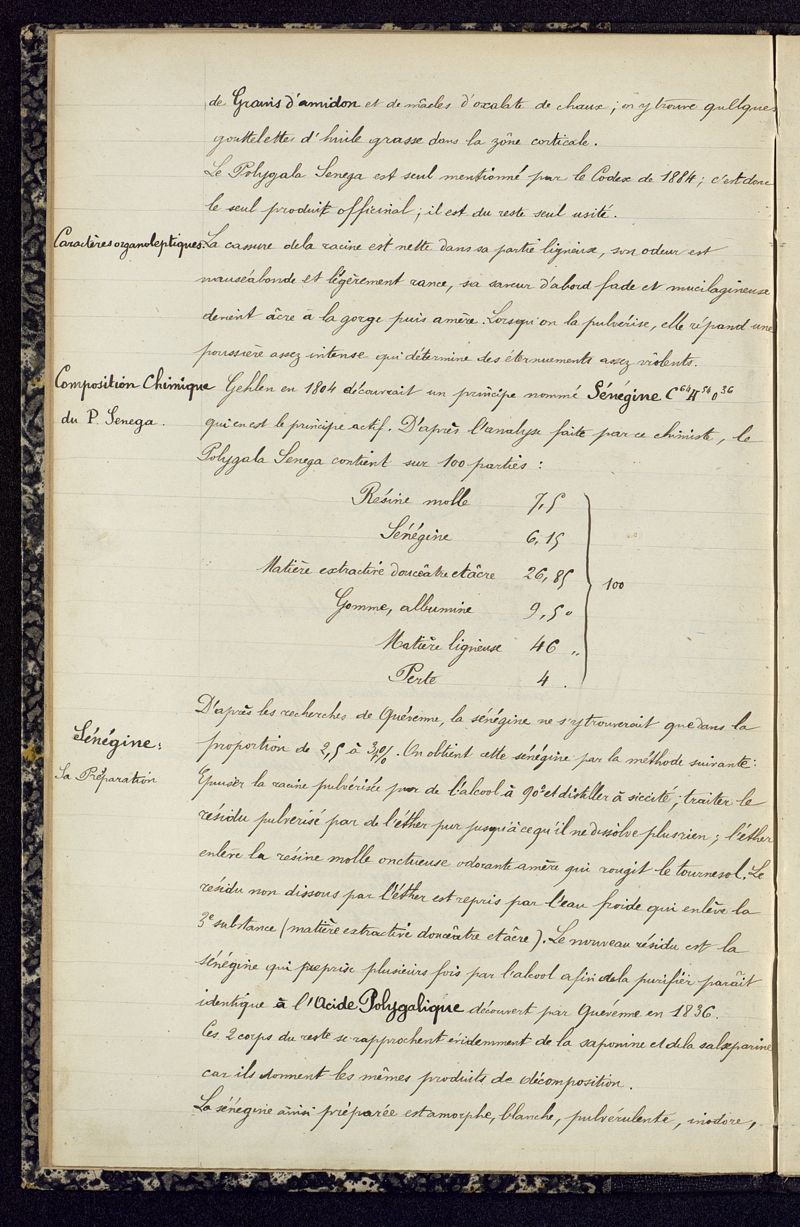 de Grains d'amidon et de mâcles d'oxalate de chaux ; on y trouve quelques
gouttelettes d'huile grasse dans la zône corticale.
Le Polygala Senega est seul mentionné par le Codex de 1884 ; c'est donc
le seul produit officinal ; il est du reste seul usité.
Caractères organoleptiques. La cassure de la racine est nette dans sa partie ligneuse, son odeur est
nauséabonde et légèrement rance, sa saveur d'abord fade et mucilagineuse
devient âcre à la gorge puis amère. Lorsqu'on la pulvérise, elle répand une
poussière assez intense qui détermine des éternuements assez violents.
Composition Chimique Gehlen en 1804 découvrait un principe nommé Sénégine C⁶⁴H⁵⁴O³⁶
du P. Senega. qui en est le principe actif. D'après l'analyse faite par ce chimiste, le
Polygala Senega contient sur 100 parties :
Résine molle 7,5
Sénégine 6,15
Matière extractive douceâtre et âcre 26,85
Gomme, albumine 9,50
Matière ligneuse 46 „
Perte 4 .
100
D'après les recherches de Quévenne, la sénégine ne s'y trouverait que dans la
Sénégine : proportion de 2,5 à 3 %. On obtient cette sénégine par la méthode suivante :
Sa Préparation Epuiser la racine pulvérisée par de l'alcool à 90° et distiller à siccité ; traiter le
résidu pulverisé par de l'éther pur jusqu'à ce qu'il ne dissolve plus rien ; l'éther
enlève la résine molle onctueuse odorante amère qui rougit le tournesol. Le
residu non dissous par l'éther est repris par l'eau froide qui enlève la
3e substance (matière extractive douceâtre et âcre). Le nouveau résidu est la
sénégine qui reprise plusieurs fois par l'alcool afin de la purifier paraît
identique à l'Acide Polygalique découvert par Quévenne en 1836.
Ces 2 corps du reste se rapprochent évidemment de la saponine et de la salseparine
car ils donnent les mêmes produits de décomposition.
La sénégine ainsi préparée est amorphe, blanche, pulvérulente, inodore,